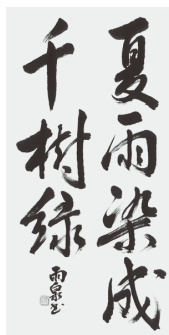 夏雨染成
千樹緑
雨泉書